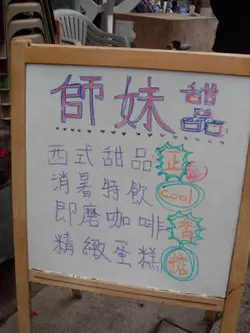 師妹甜品
西式甜品 正
消暑特飲 cool
即磨咖啡 香
精緻蛋糕